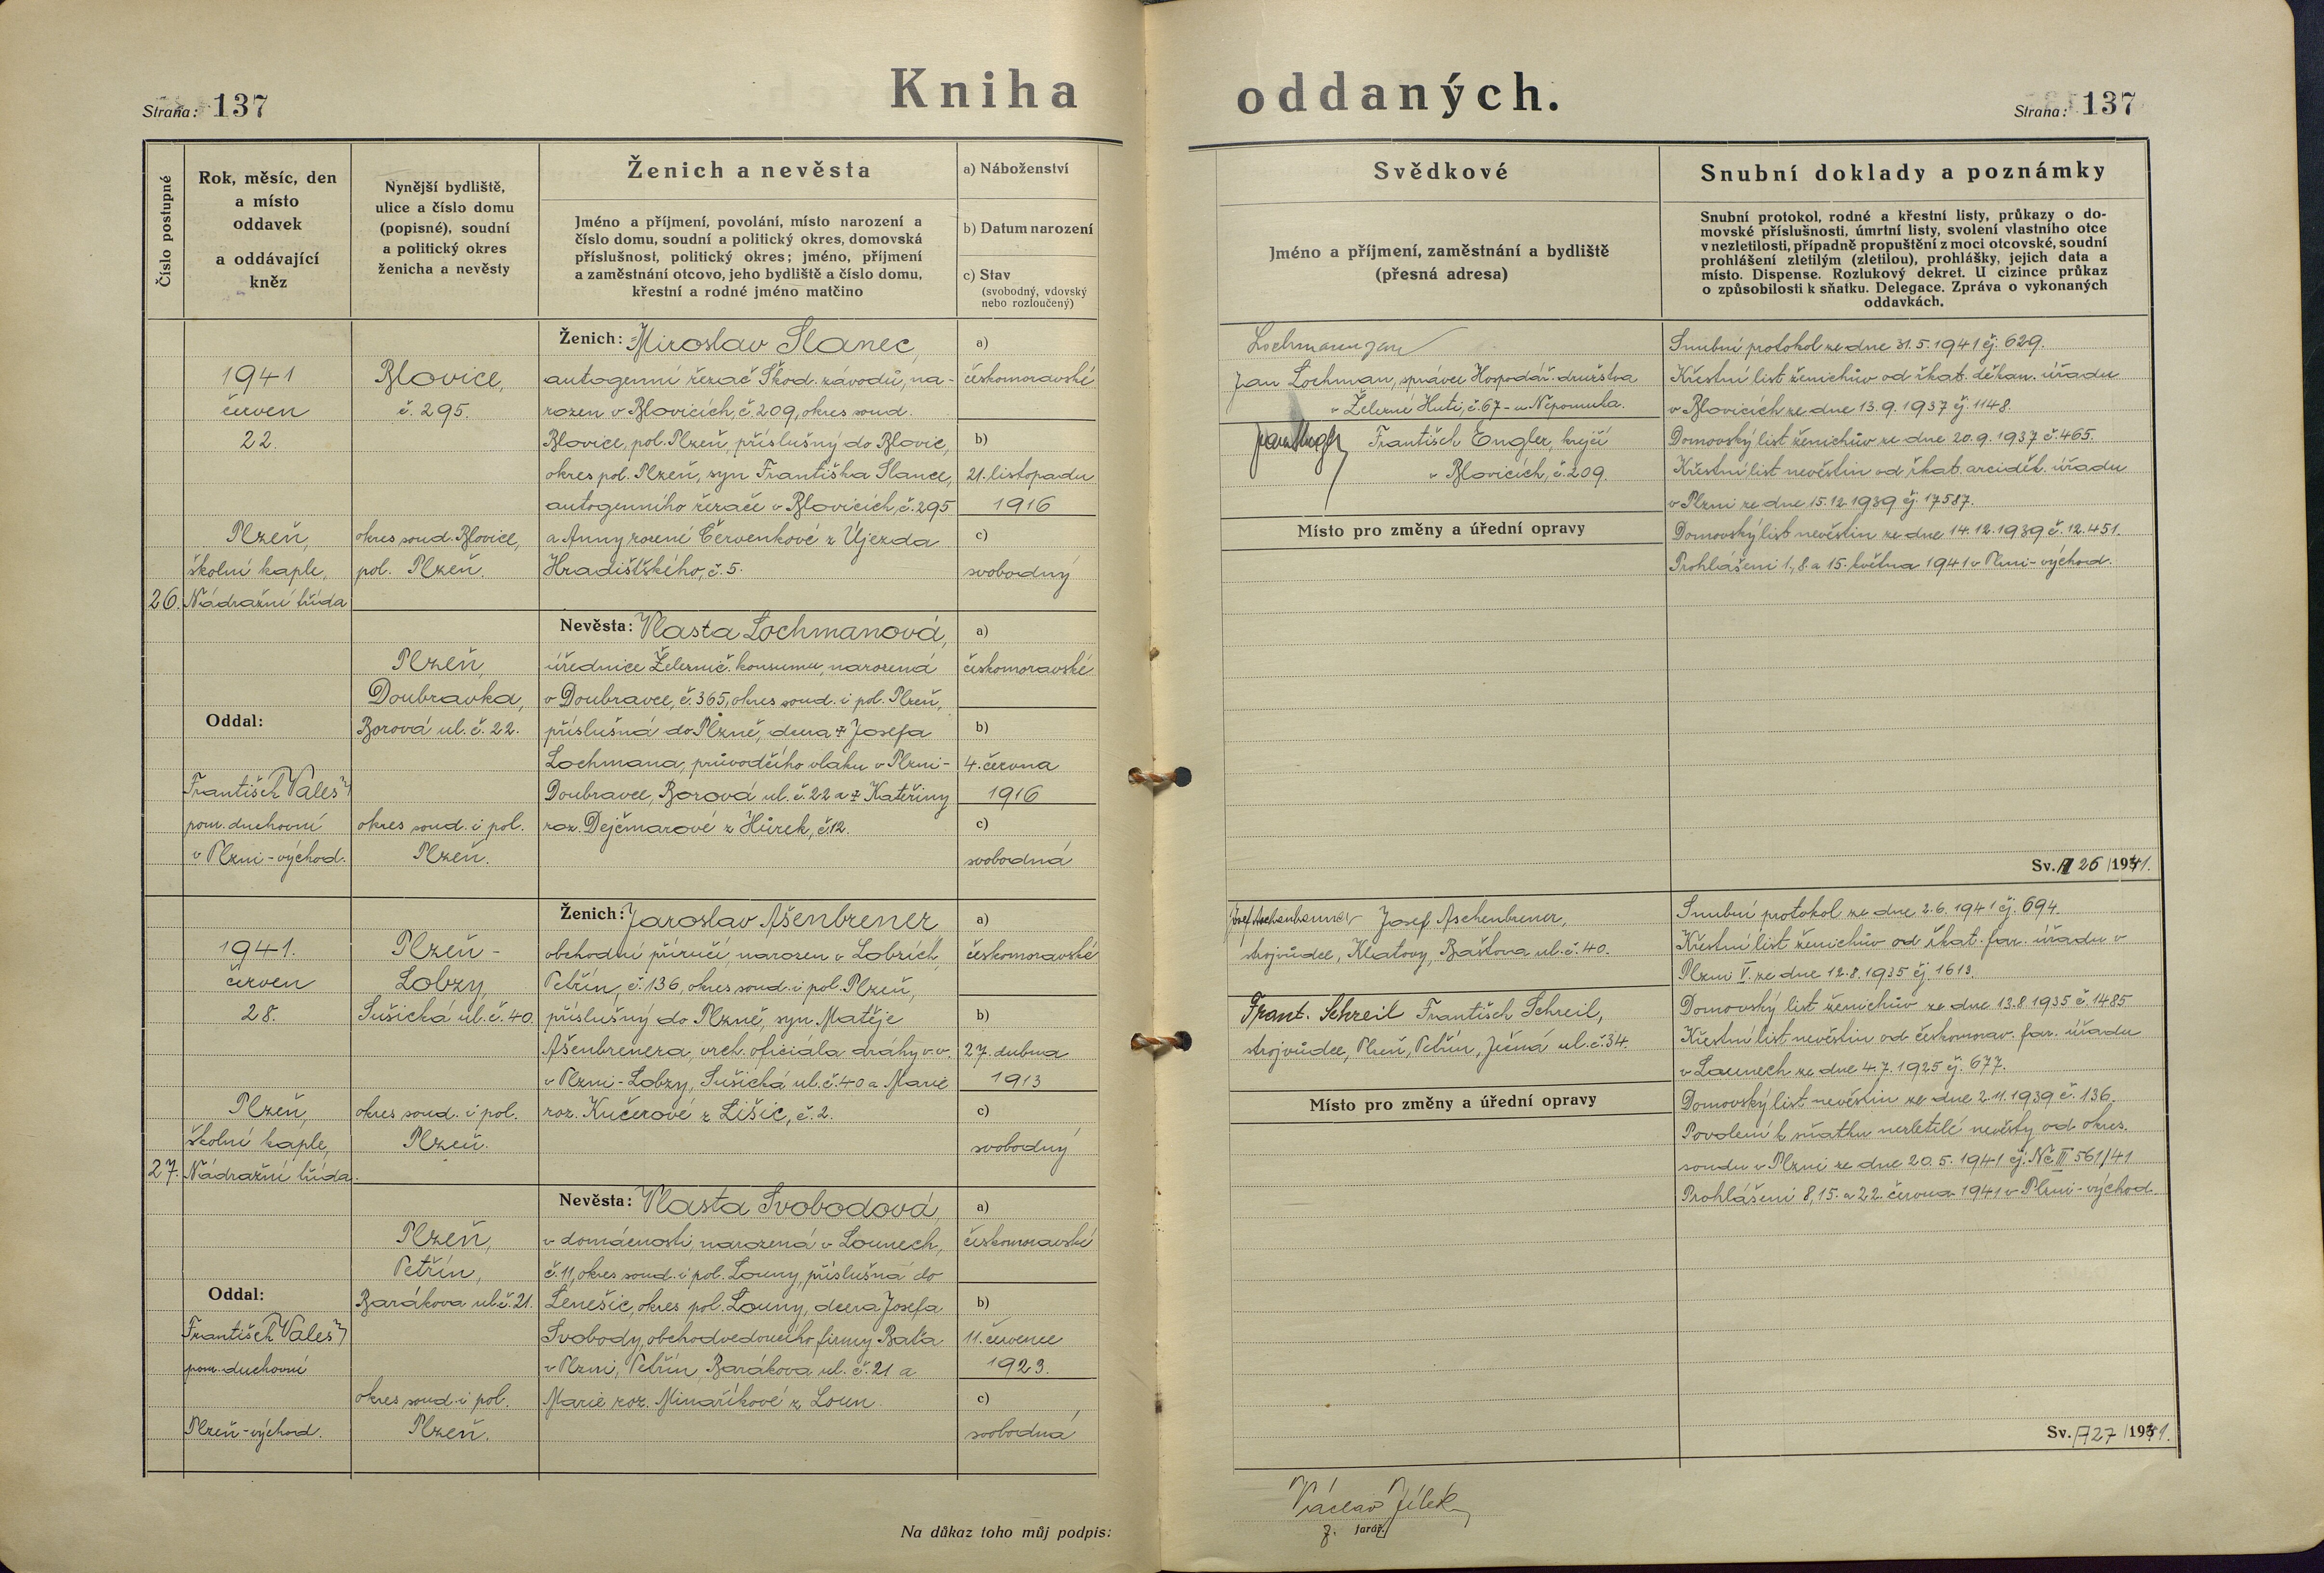 Strana: 137
Kniha
oddaných.
Strana: 137
Číslo postupné
Rok, měsíc, den
a místo
oddavek
a oddávající
kněz
Nynější bydliště,
ulice a číslo domu
(popisné), soudní
a politický okres
ženicha a nevěsty
Ženich a nevěsta
Jméno a příjmení, povolání, místo narození a
číslo domu, soudní a politický okres, domovská
příslušnost, politický okres; jméno, příjmení
a zaměstnání otcovo, jeho bydliště a číslo domu,
křestní a rodné jméno matčino
a) Náboženství
b) Datum narození
c) Stav
(svobodný, vdovský
nebo rozloučený)
Svědkové
Jméno a příjmení, zaměstnání a bydliště
(přesná adresa)
Snubní doklady a poznámky
Snubní protokol, rodné a křestní listy, průkazy o do-
movské příslušnosti, úmrtní listy, svolení vlastního otce
v nezletilosti, případně propuštění z moci otcovské, soudní
prohlášení zletilým (zletilou), prohlášky, jejich data a
místo. Dispense. Rozlukový dekret. U cizince průkaz
o způsobilosti k sňatku. Delegace. Zpráva o vykonaných
oddavkách.
26.
1941
červen
22.
Plzeň,
školní kaple,
Nádražní třída
Oddal:
František Valeš
pom. duchovní
v Plzni-východ.
Blovice,
č. 295.
okres soud. Blovice,
pol. Plzeň.
Ženich: Miroslav Slanec,
autogenní řezač Škod. závodů, na-
rozen v Blovicích, č. 209, okres soud.
Blovice, pol. Plzeň, příslušný do Blovic,
okres pol. Plzeň, syn Františka Slance,
autogenního řezače v Blovicích, č. 295
a Anny rozené Červenkové z Újezda
Hradišťského, č. 5.
a)
českomoravské
b)
21. listopadu
1916
c)
svobodný
Plzeň,
Doubravka,
Borová ul. č. 22.
okres soud. i pol.
Plzeň.
Nevěsta: Vlasta Lochmanová,
úřednice Železnič. konsumu, narozená
v Doubravce, č. 365, okres soud. i pol. Plzeň,
příslušná do Plzně, dcera + Josefa
Lochmana, průvodčího vlaku v Plzni-
Doubravce, Borová ul. č. 22 a + Kateřiny
roz. Dejčmarové z Hůrek, č. 12.
a)
českomoravské
b)
4. června
1916
c)
svobodná
Lochman Jan
Jan Lochman, správce Hospodář. družstva
v Železné Huti, č. 67 - u Nepomuka.
František Engler, krejčí
v Blovicích, č. 209.
Místo pro změny a úřední opravy
Snubní protokol ze dne 31. 5. 1941 čj. 629.
Křestní list ženichův od řkat. děkan. úřadu
v Blovicích ze dne 13. 9. 1937 čj. 1148.
Domovský list ženichův ze dne 20. 9. 1937 č. 465.
Křestní list nevěstin od řkat. arciděk. úřadu
v Plzni ze dne 15. 12. 1939 čj. 17587.
Domovský list nevěstin ze dne 14. 12. 1939 č. 12.451.
Prohlášeni 1., 8. a 15. května 1941 v Plzni-východ.
Sv. A 26 /1941.
27.
1941.
červen
28.
Plzeň,
školní kaple,
Nádražní třída.
Oddal:
František Valeš
pom. duchovní
Plzeň-východ.
Plzeň -
Lobzy,
Sušická ul. č. 40.
okres soud. i pol.
Plzeň.
Ženich: Jaroslav Ašenbrener
obchodní příručí, narozen v Lobzích,
Petřín, č. 136, okres soud. i pol. Plzeň,
příslušný do Plzně, syn Matěje
Ašenbrenera, vrch. oficiála dráhy v. v.
v Plzni-Lobzy, Sušická ul. č. 40 a Marie
roz. Kučerové z Lišic, č. 2.
a)
českomoravské
b)
27. dubna
1913
c)
svobodný
Plzeň,
Petřín,
Barákova ul. č. 21.
okres soud. i pol.
Plzeň.
Nevěsta: Vlasta Svobodová,
v domácnosti, narozená v Lounech,
č. 11, okres soud. i pol. Louny, příslušná do
Lenešic, okres pol. Louny, dcera Josefa
Svobody, obchodvedoucího firmy Baťa
v Plzni, Petřín, Barákova ul. č. 21 a
Marie roz. Minaříkové z Loun.
a)
českomoravské
b)
11. července
1923.
c)
svobodná
Josef Aschenbrenner Josef Aschenbrener,
strojvůdce, Klatovy, Baštova ul. č. 40.
Frant. Schreil František Schreil,
strojvůdce, Plzeň, Petřín, Ječná ul. č. 34.
Místo pro změny a úřední opravy
Snubní protokol ze dne 2. 6. 1941 čj. 694.
Křestní list ženichův od řkat. far. úřadu v
Plzni V. ze dne 12. 8. 1935 čj. 1613.
Domovský list ženichův ze dne 13. 8. 1935 č. 1485.
Křestní list nevěstin od českomorav. far. úřadu
v Lounech ze dne 4. 7. 1925 čj. 677.
Domovský list nevěstin ze dne 2. 11. 1939 č. 136.
Povolení k sňatku nezletilé nevěsty od okres.
soudu v Plzni ze dne 20. 5. 1941 čj. Nc III 561/41
Prohlášeni 8., 15. a 22. června 1941 v Plzni-východ.
Sv. A 27 /1941.
Na důkaz toho můj podpis:
Václav Jílek
z. farář.